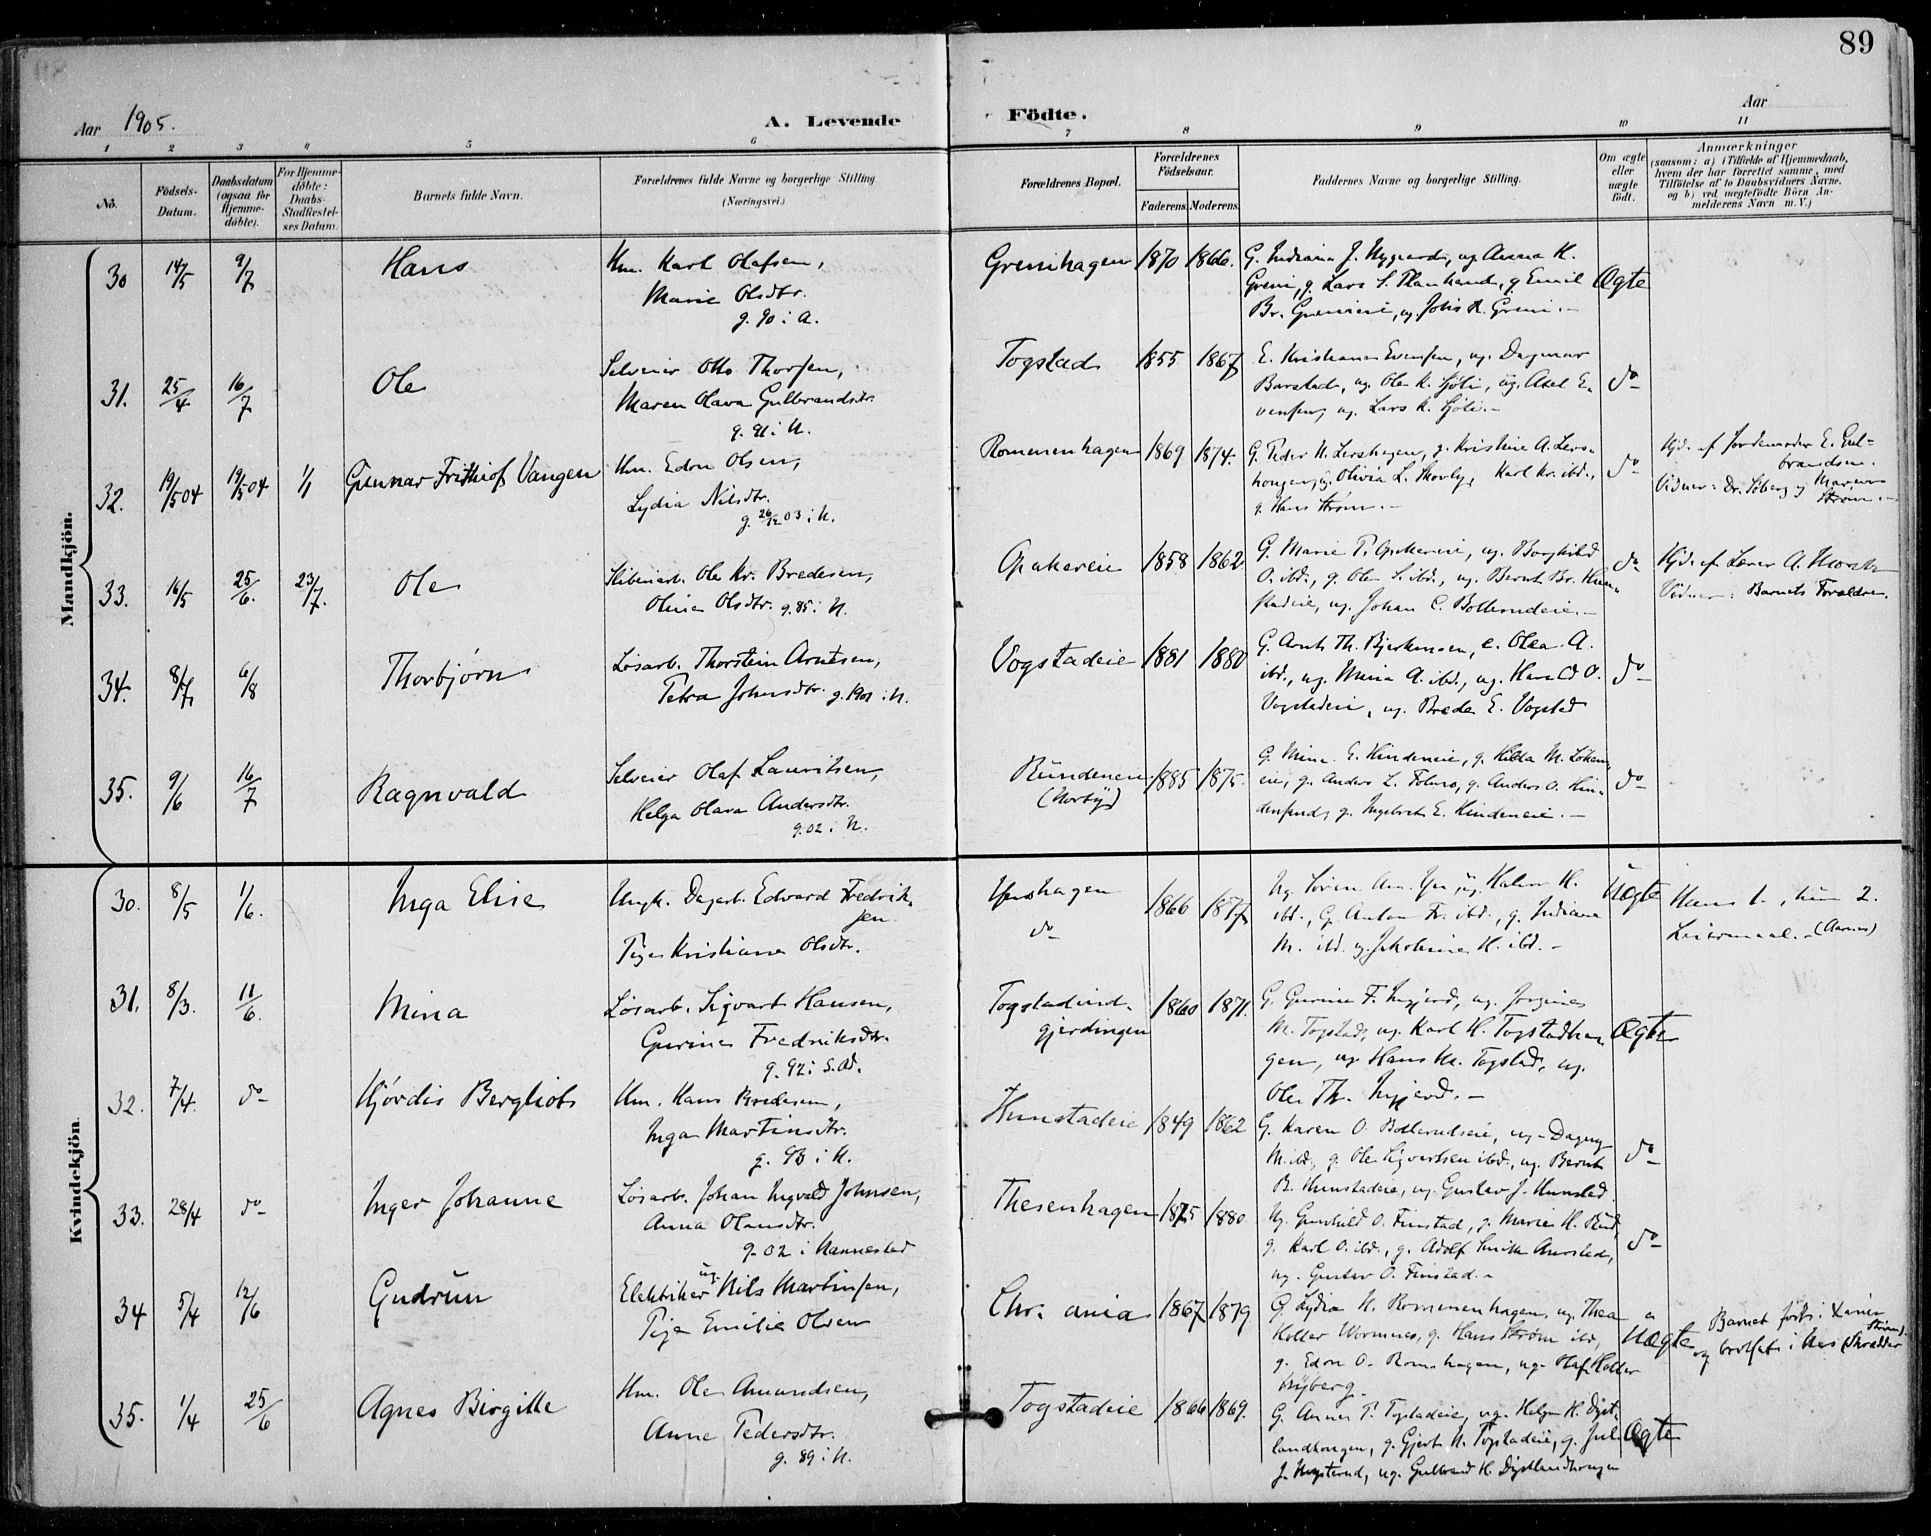 89
Aar 1905.
A. Levende
Födte.
Aar
1 2 3 4 5 6 7 8 9 10 11
No.
Födsels-
Datum.
Daabsdatum
(ogsaa for
Hjemme-
döbte).
For Hjemme-
döbte:
Daabs-
Stadfæstel-
ses Datum.
Barnets fulde Navn.
Forældrenes fulde Navne og borgerlige Stilling
(Næringsvei.)
Forældrenes Bopæl.
Forældrenes
Födselsaar.
Faderens. Moderens.
Faddernes Navne og borgerlige Stilling.
Om ægte
eller
uægte
födt.
Anmærkninger
(saasom: a) i Tilfælde af Hjemmedaab,
hvem der har forrettet samme, med
Tilföielse af to Daabsvidners Navne,
og b) ved uægtefödte Börn An-
melderens Navn m. V.)
Mandkjön.
30 14/5 9/7 Hans
Hm. Karl Olafsen,
Marie Olsdtr.
g. 90 i A.
Grenihagen 1870 1866.
G. Indiana J. Nygaard, ug. Anna K.
Greni, g. Lars S. g. Emil
Br. Grenieie, ug. Johs R. Greni.-
Ægte
31. 25/4 16/7 Ole
Selveier Otto Thorsen,
Maren Olava Gulbrandsdtr.
g. 91 i N.
Togstad 1855 1867
E. Kristiane Evensen, ug. Dagmar
Barstad, ug. Ole K. Sjöli, ug. Axel E-
vensen, ug. Lars K. Sjöli.-
do
32. 19/5 04 19/5 04 1/1 Gunnar Frithiof Vangen
Hm. Edon Olsen,
Lydia Nilsdtr.
g. 26/12 03 i N.
Romenenhagen 1869 1874.
G. Peder N. Lershagen, g. Kristine A. Lers-
hagen, g. Olivia L. Skovly, Karl Kr. ibd.,
g. Hans Strøm.-
do
Hjd. af Jordemoder E. Gul-
brandsen.
Vidner: Dr. Soberg og Maren
Strøm.-
33. 16/5 25/6. 23/7. Ole
Ole Kr. Bredesen,
Oline Olsdtr. g. 85 i N.
Opakereie 1858 1862
G. Marie P. Opakereie, ug. Borghild
O. ibd., g. Ole S. ibd., ug. Bernt Br. Hun-
stadeie, ug. Johan C. Bollerudeie.-
do
Hjd. af Lærer A. Horsle
Vidner: Barnets Forældre.
34. 8/7 6/8 Thorbjörn
Løsarb. Thorstein Arntsen,
Petra Johnsdtr. g. 1901 i N.
Vogstadeie 1881 1880
G. Arnt Th. Bjerkemoen, e. Olea A.
ibd., ug. Mina A. ibd., ug. Harald O.
Vogstadeie, ug. Brede E. Vogstad
do
35. 9/6 16/7 Ragnvald
Selveier Olaf Lauritsen,
Helga Olava Andersdtr.
g. 02 i N.
Rundeneie
(Norby)
1885 1875.
G. Mina E. Hindeneie, g. Hilda M. Løken-
eie, g. Anders L. Folmo, g. Anders O. Hin-
densund, g. Ingebret E. Hindeneie.-
do
Kvindekjön.
30. 8/5 1/6. Inga Elise
Ungk. Dagarb. Edvard Fredrik-
sen
Pige Kristiane Olsdtr.
Yershagen
do
1866 1877
Ug. Sören Am. Yer, ug. Halvor H.
ibd., G. Anton Fr. ibd., g. Indiana
M. ibd. ug. Jakobine H. ibd.-
Uægte
Hans 1., hun 2.
Leiermaal.- (Aarnes)
31. 8/3. 11/6. Mina
Løsarb. Sigvart Hansen,
Gurine Fredriksdtr.
g. 92 i S. Od.
Togstadeied-
gjerdingen
1860 1871.
G. Gurine F. Ingjerd, ug. Jorgine
M. Togstad, ug. Karl H. Togstadha-
gen, ug. Hans M. Togstad, ug.
Ole Th. Ingjerd.-
Ægte
32. 7/4. do Hjördis Bergliot
Hm. Hans Bredesen,
Inga Martinsdtr.
g. 93 i N.
Hunstadeie 1849 1862
G. Karen O. Bollerudeie, ug. Dagny
M. ibd., g. Ole Sigvartsen ibd., ug. Bernt
B. Hunstadeie, ug. Gustav J. Hunstad.
do
33. 28/4 do Inger Johanne
Løsarb. Johan Ingvald Johnsen,
Anna Olausdtr.
g. 02 i Nannestad
Thesenhagen 1875 1880
Ug. Gunhild O. Finstad, g. Marie H. Rud,
g. Karl O. ibd., g. Adolf Smith Aurstad,
ug. Gustav O. Finstad.-
do
34 5/4 12/6 Gudrun
Elektriker ug. Nils Martinsen,
Pige Emilie Olsen
Chr. ania 1867 1879
G. Lydia N. Romenenhagen, ug. Thea
Holter Wormnes, g. Hans Strøm ibd,
g. Edon O. Rom. hagen, ug. Olaf Holter
Nyberg.
Uægte
Barnet födt i Xania
og bortsat i Nes (Skrædder
Strøm).
35. 1/4 25/6 Agnes Birgitte
Hm. Ole Amundsen,
Anne Pedersdtr.
g. 89 i N.
Togstadeie 1866 1869.
G. Anne P. Togstadeie, ug. Helga H. Dyst-
landhaugen, g. Gjert N. Togstadeie, g. Jul.
J. Nysterud, ug. Gulbrand H. Dystlandhaugen
Ægte